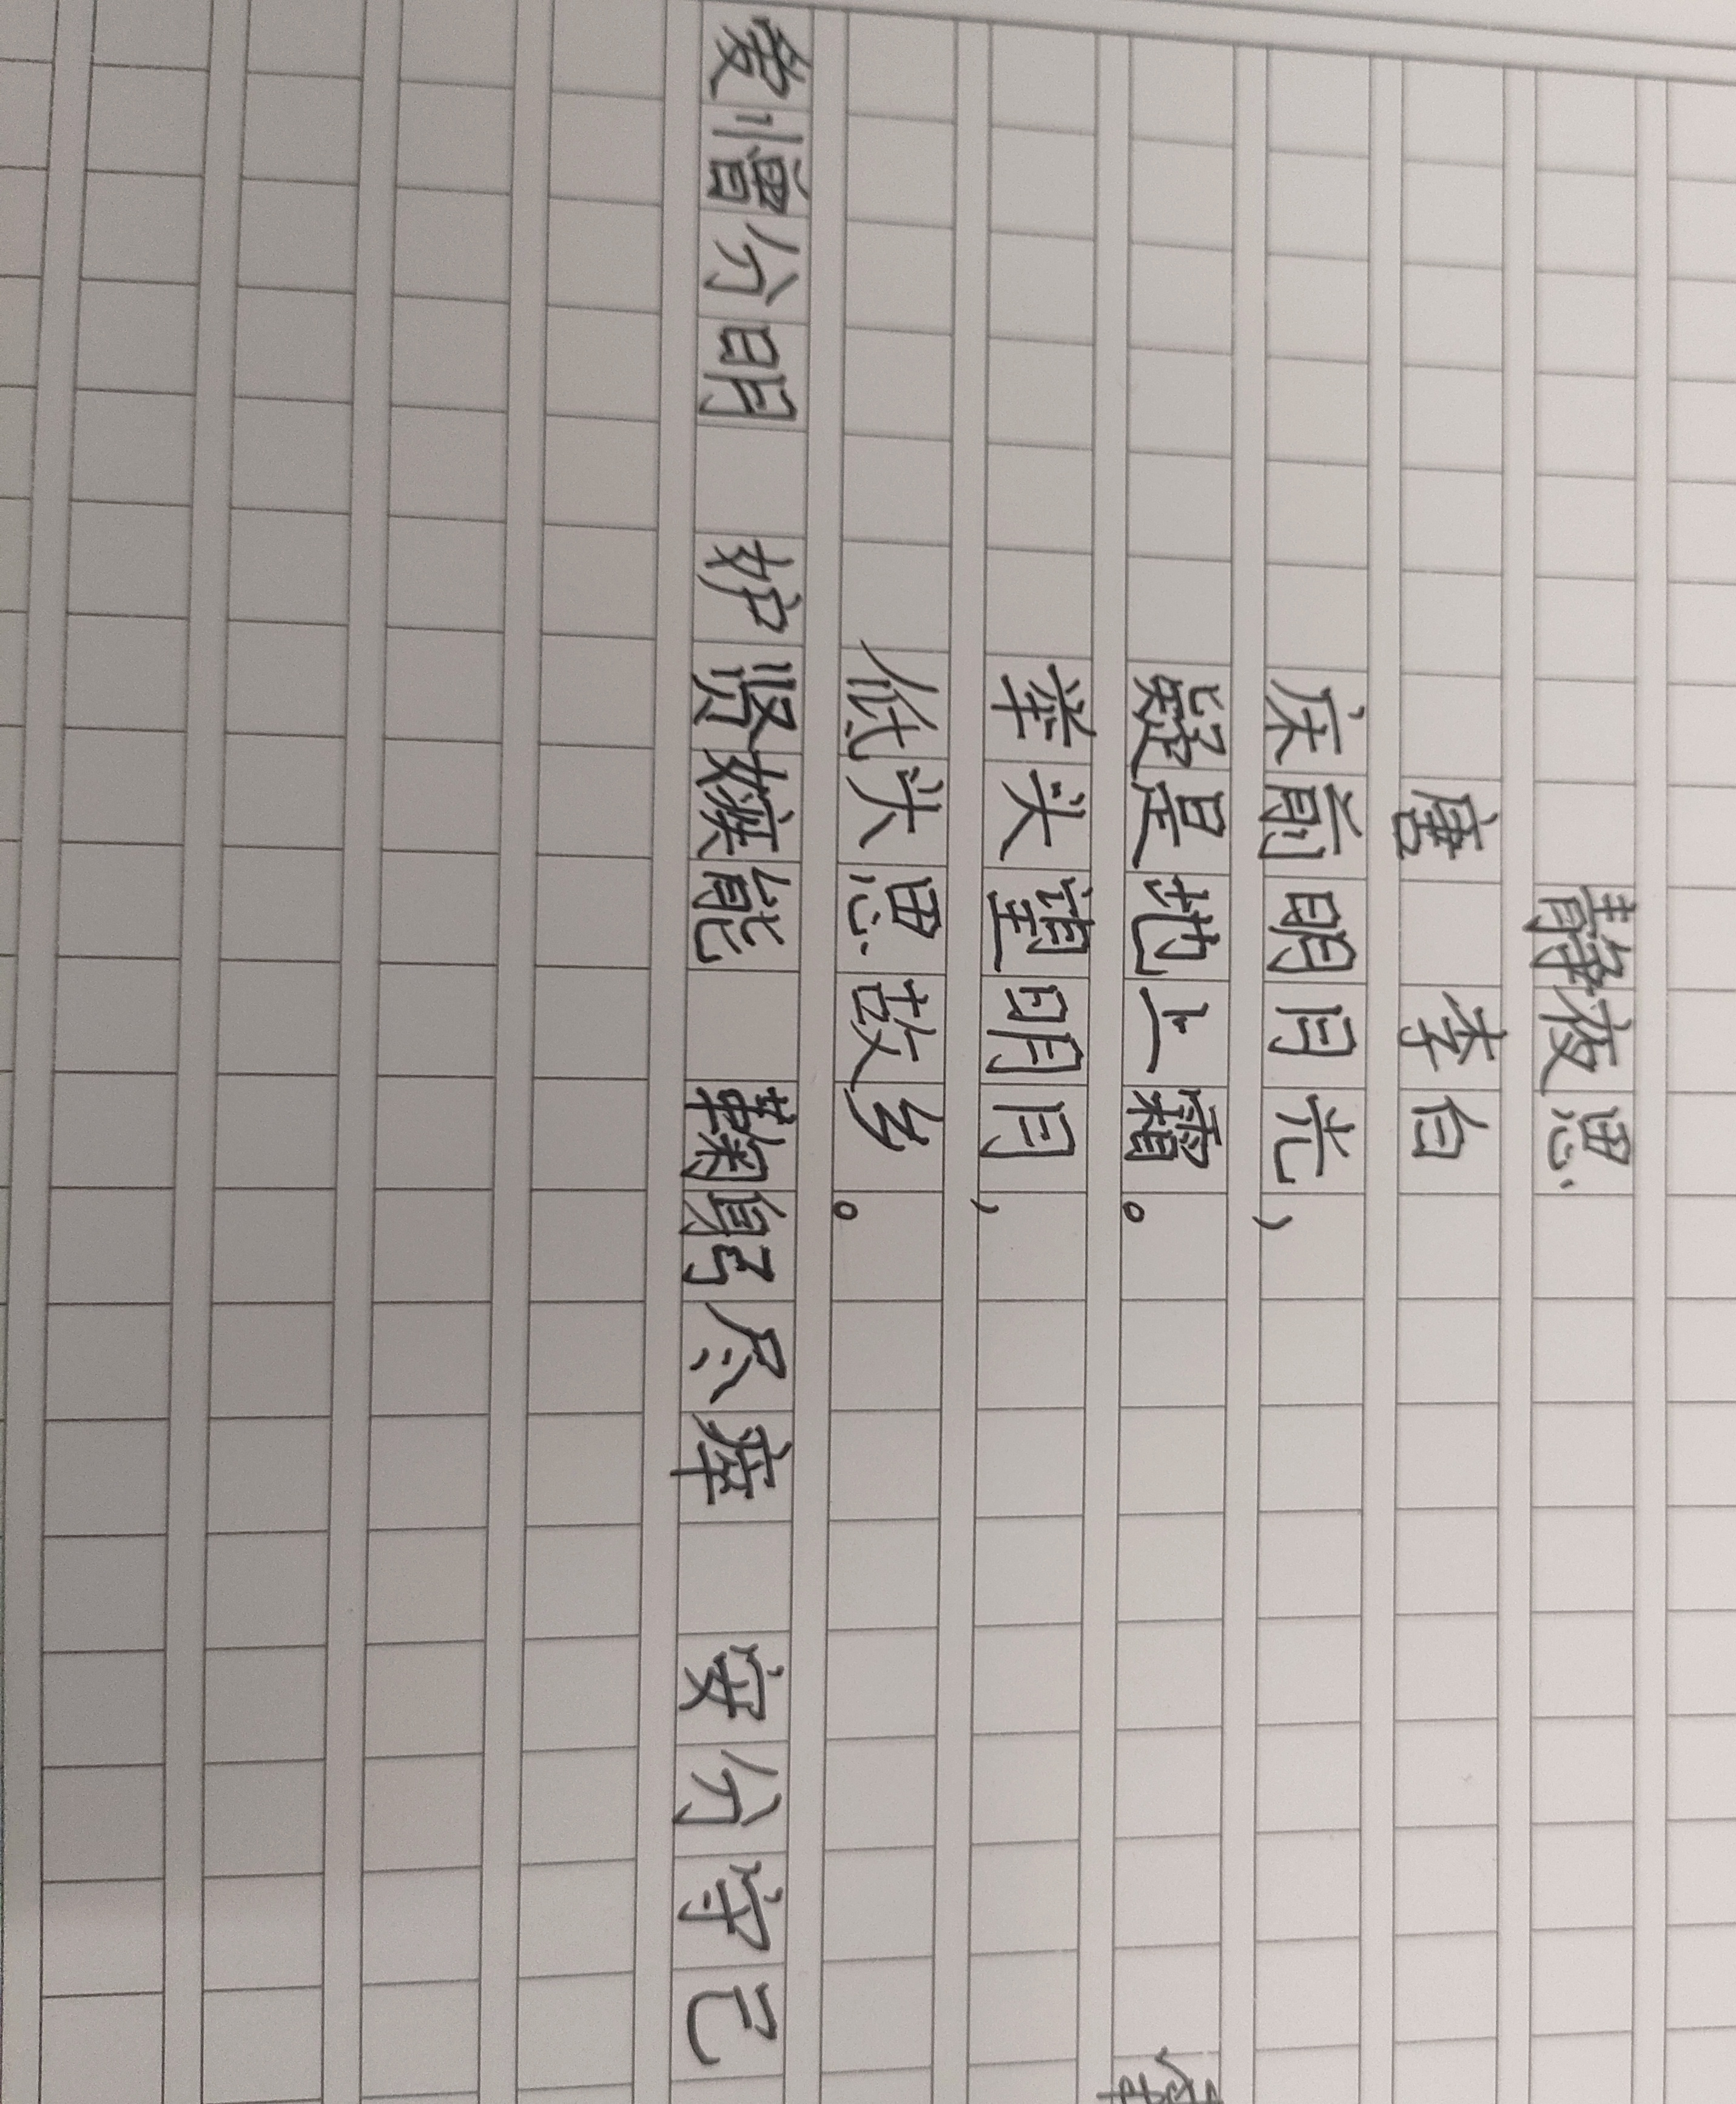 静夜思
唐 李白
床前明月光，
疑是地上霜。
举头望明月，
低头思故乡。
爱憎分明 妒贤嫉能 鞠躬尽瘁 安分守己